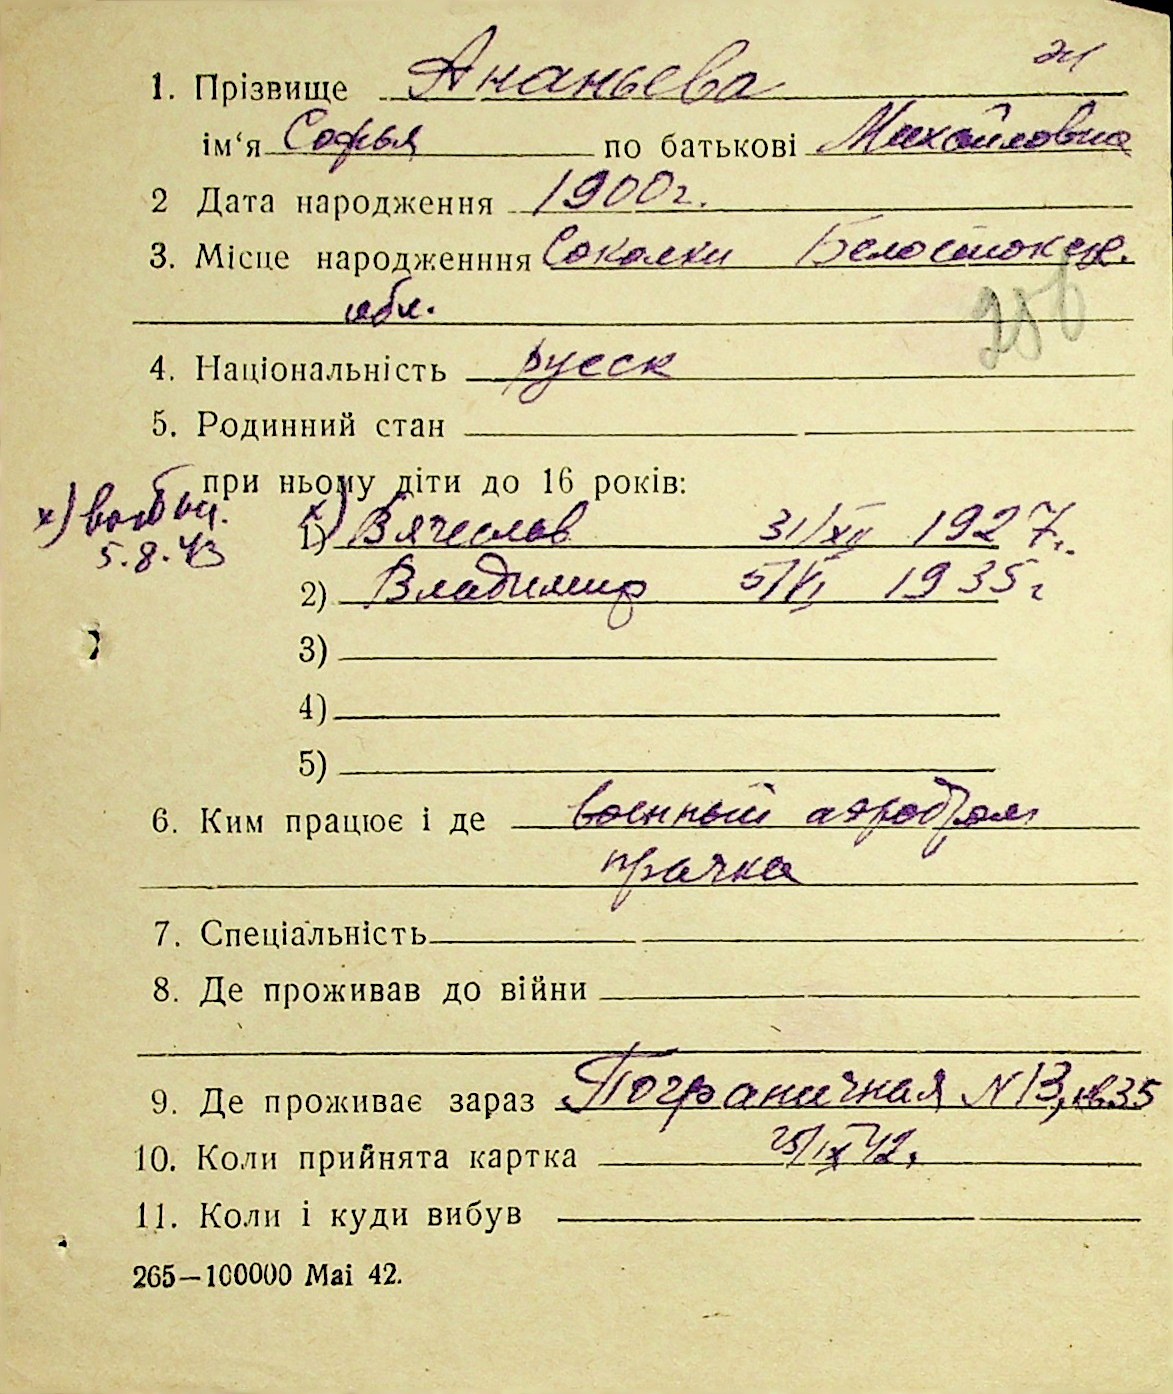 1. Прізвище Ананьева
ім‘я Софья по батькові Михайловна
2 Дата народження 1900г.
3. Місце народженння Соколки Белостокск.
обл.
4. Національність русск
5. Родинний стан
при ньому діти до 16 років:
х) выбыл. х)
1) Вячеслав 31/XII 1927г.
5.8.43
2) Владимир 5/VI 1935г
3)
4)
5)
6. Ким працює і де военный аэродром
прачка
7. Спеціальність
8. Де проживав до війни
9. Де проживає зараз Пограничная N 13, кв.35
10. Коли прийнята картка 25/IX 42.
11. Коли і куди вибув
265—100000 Mai 42.